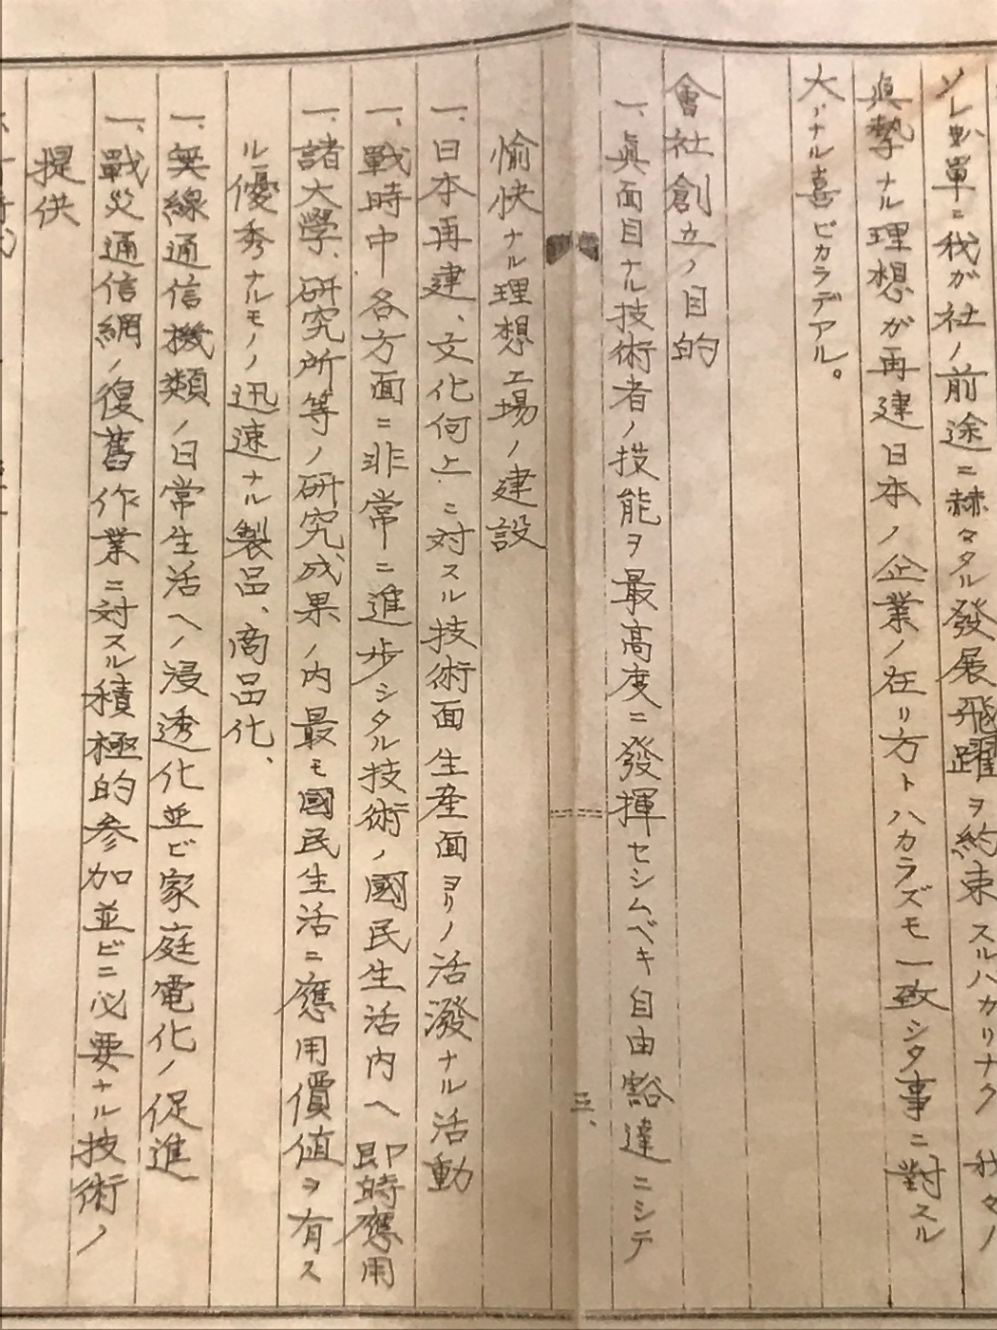 ソレハ單ニ我ガ社ノ前途ニ赫々タル發展飛躍ヲ約束スルハカリナク 我々ノ
眞摯ナル理想ガ再建日本ノ企業ノ在リ方トハカラズモ一致シタ事ニ對スル
大ナル喜ビカラデアル。
會社創立ノ目的
一、眞面目ナル技術者ノ技能ヲ最高度ニ發揮セシムベキ自由豁達ニシテ
愉快ナル理想工場ノ建設
一、日本再建、文化向上ニ対スル技術面生産面ヨリノ活潑ナル活動
一、戰時中各方面ニ非常ニ進歩シタル技術ノ國民生活内ヘ即時應用
一、諸大學、研究所等ノ研究成果ノ内最モ國民生活ニ應用價値ヲ有ス
ル優秀ナルモノノ迅速ナル製品、商品化、
一、無線通信機類ノ日常生活ヘノ浸透化並ビ家庭電化ノ促進
一、戰災通信網ノ復舊作業ニ対スル積極的参加並ビニ必要ナル技術ノ
提供
三、